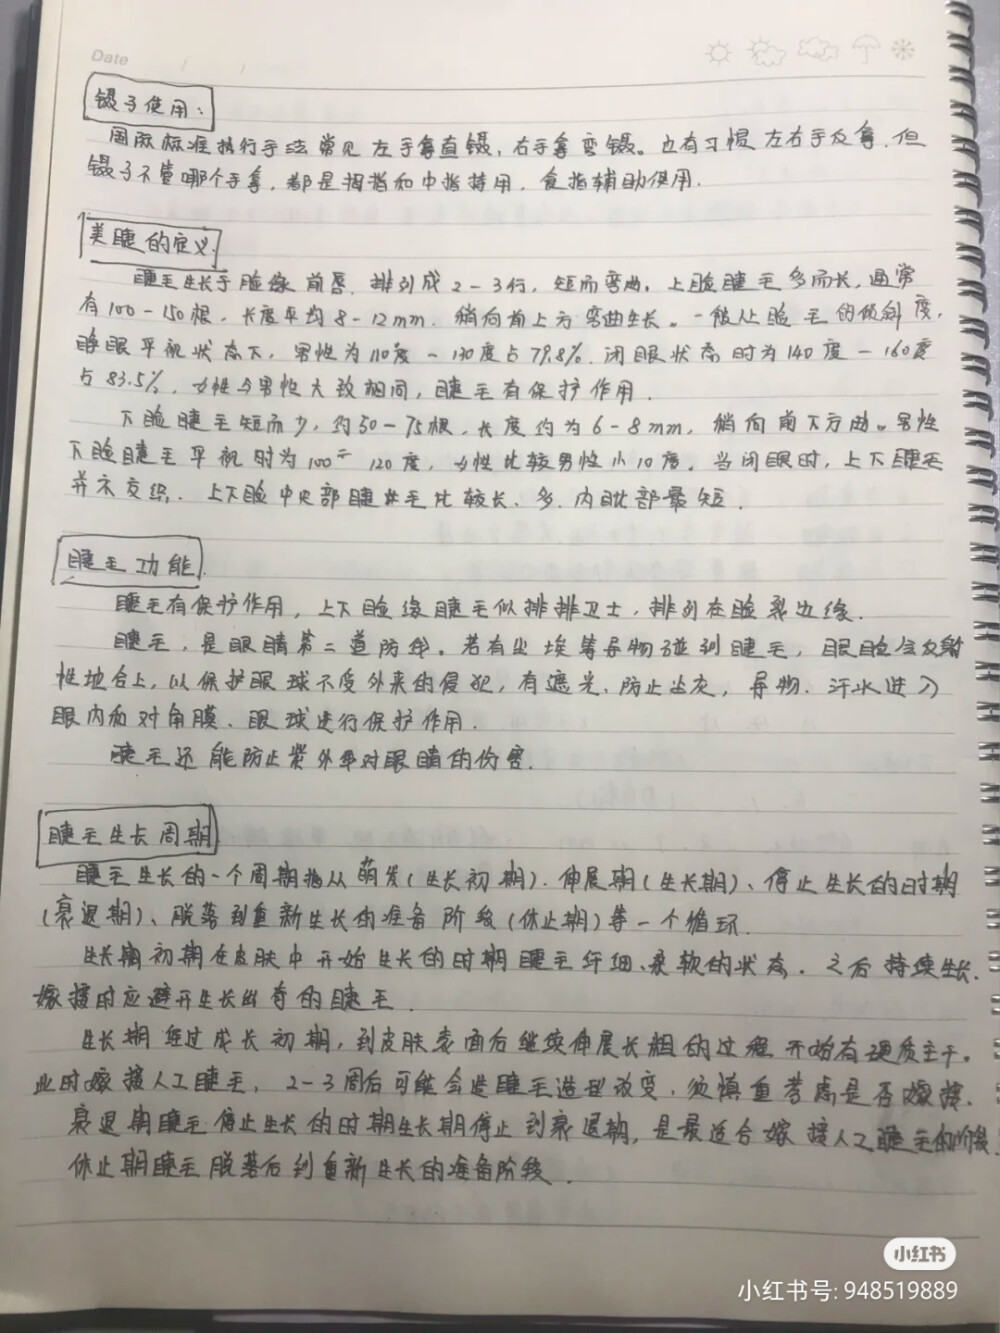 Date / /
镊子使用：
国际标准执行手法常见左手拿直镊，右手拿弯镊。也有习惯左右手反拿，但
镊子不管哪个手拿，都是拇指和中指持用，食指辅助使用．
美睫的定义
睫毛生长于睑缘前唇，排列成2-3行，短而弯曲．上睑睫毛多而长，通常
有100-150根，长度平均8-12mm．稍向前上方弯曲生长。一般人睑毛的倾斜度，
睁眼平视状态下，男性为110度-130度占79.8%．闭眼状态时为140度-160度
占83.5%．女性与男性大致相同，睫毛有保护作用．
下睑睫毛短而少，约50-75根，长度约为6-8mm，稍向前下方曲。男性
下睑睫毛平视时为100-120度，女性比较男性小10度。当闭眼时，上下睫毛
并不交织．上下睑中央部睫毛比较长、多．内眦部最短．
睫毛功能
睫毛有保护作用，上下睑缘睫毛似排排卫士，排列在睑裂边缘．
睫毛，是眼睛第二道防线。若有尘埃等异物碰到睫毛，眼睑会反射
性地合上，以保护眼球不受外来的侵犯，有遮光、防止尘灰，异物．汗水进入
眼内和对角膜．眼球进行保护作用．
睫毛还能防止紫外线对眼睛的伤害．
睫毛生长周期
睫毛生长的一个周期指从萌发(生长初期)．伸展期(生长期)、停止生长的时期
(衰退期)、脱落到重新生长的准备阶段(休止期)等一个循环．
生长期初期在皮肤中开始生长的时期睫毛纤细、柔软的状态．之后持续生长．
嫁接时应避开生长出奇的睫毛．
生长期经过成长初期，到皮肤表面后继续伸展长粗的过程开始有硬质主干。
此时嫁接人工睫毛，2-3周后可能会造睫毛造型改变．须慎重考虑是否嫁接．
衰退期睫毛停止生长的时期生长期停止到衰退期，是最适合嫁接人工睫毛的阶段．
休止期睫毛脱落后到重新生长的准备阶段．
小红书
小红书号: 948519889